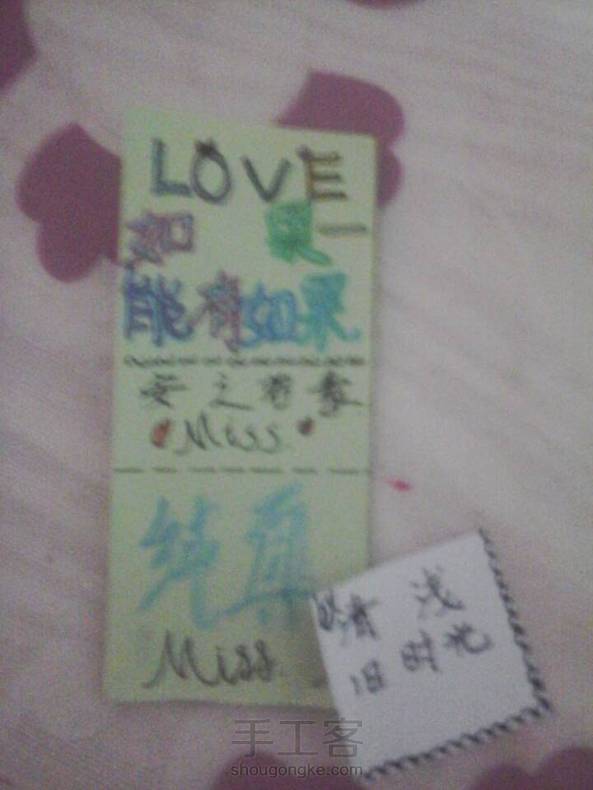 LOVE
如 果一
能有如果.
安之若素
Miss.
纯真
Miss.
晴 浅
旧时光
手工客
shougongke.com